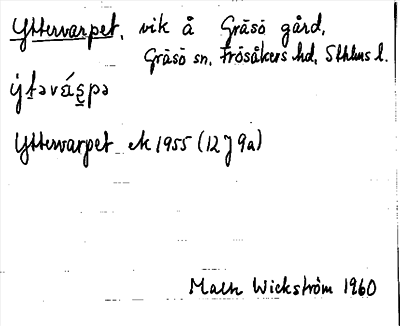 Yttervarpet, vik å Gräsö gård,
Gräsö sn, Frösåkers hd, Sthlms l.
Yttervarpet ek 1955 (12J9a)
Math Wickström 1960